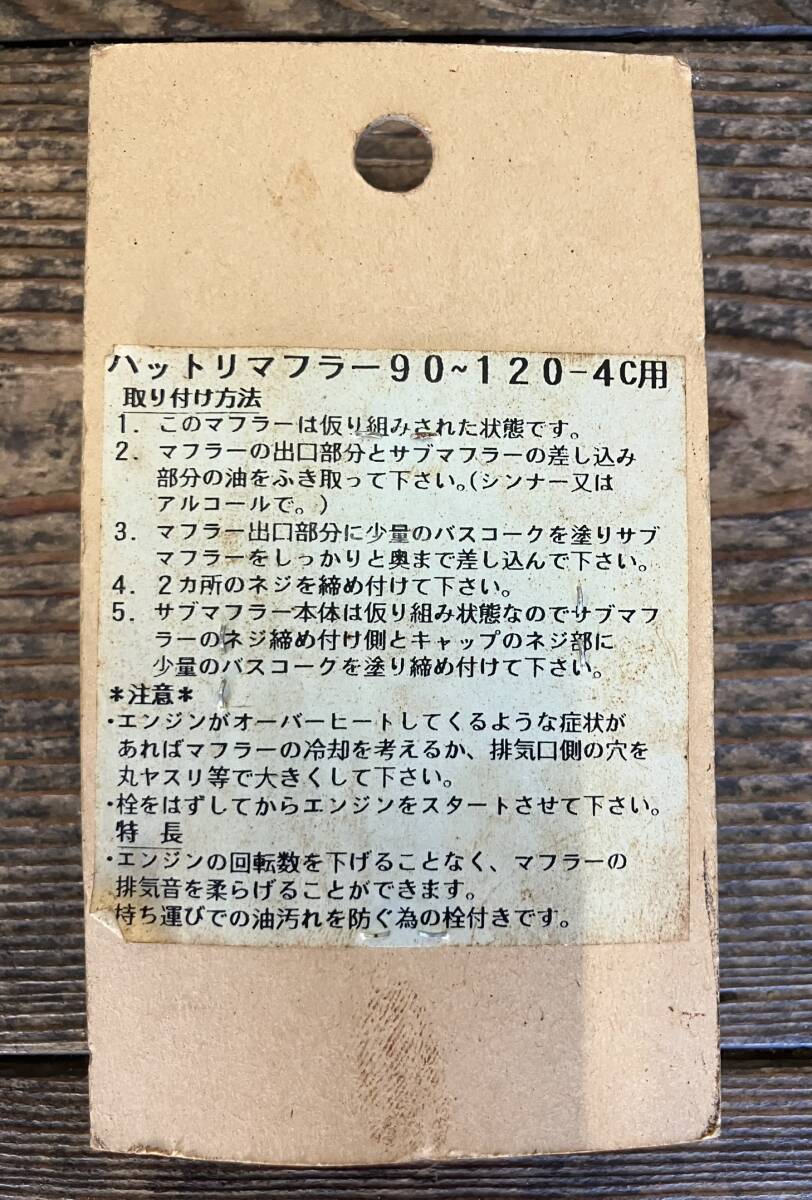 ハットリマフラー９０~１２０-４C用
取り付け方法
１．このマフラーは仮り組みされた状態です。
２．マフラーの出口部分とサブマフラーの差し込み
部分の油をふき取って下さい。(シンナー又は
アルコールで。)
３．マフラー出口部分に少量のバスコークを塗りサブ
マフラーをしっかりと奥まで差し込んで下さい。
４．２カ所のネジを締め付けて下さい。
５．サブマフラー本体は仮り組み状態なのでサブマフ
ラーのネジ締め付け側とキャップのネジ部に
少量のバスコークを塗り締め付けて下さい。
*注意*
・エンジンがオーバーヒートしてくるような症状が
あればマフラーの冷却を考えるか、排気口側の穴を
丸ヤスリ等で大きくして下さい。
・栓をはずしてからエンジンをスタートさせて下さい。
特　長
・エンジンの回転数を下げることなく、マフラーの
排気音を柔らげることができます。
持ち運びでの油汚れを防ぐ為の栓付きです。